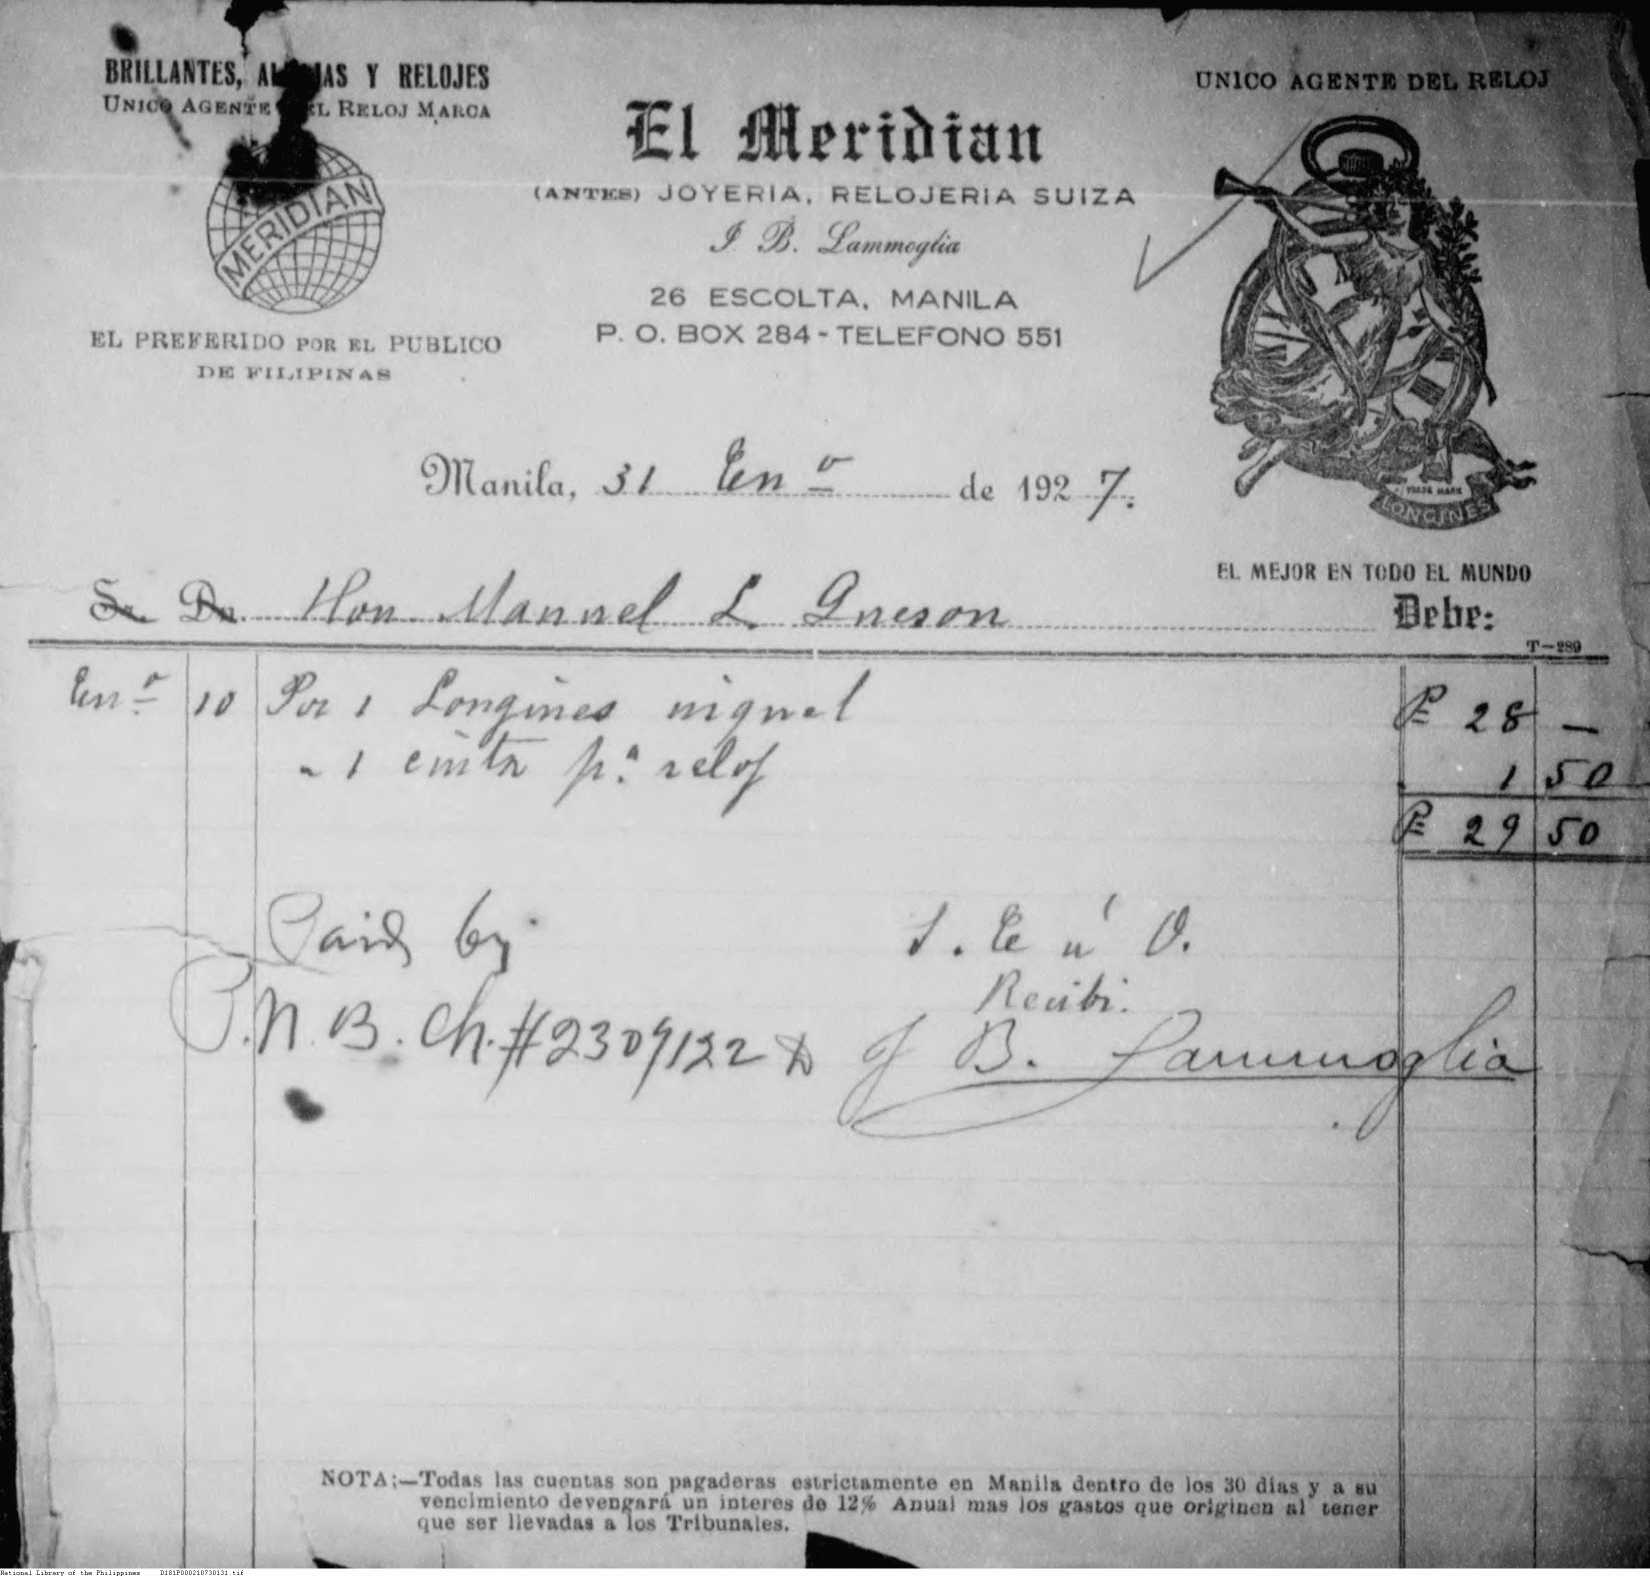 BRILLANTES, ALHAJAS Y RELOJES
UNICO AGENTE DEL RELOJ MARCA
MERIDIAN
EL PREFERIDO POR EL PUBLICO
DE FILIPINAS
El Meridian
(ANTES) JOYERIA, RELOJERIA SUIZA
J. B. Lammoglia
26 ESCOLTA, MANILA
P. O. BOX 284 - TELEFONO 551
UNICO AGENTE DEL RELOJ
TRADE MARK
LONGINES
EL MEJOR EN TODO EL MUNDO
Manila, 31 Enº de 1927.
Sr. Dn. Hon Manuel L. Queson Debe:
T-289
Enº 10 Por 1 Longines niquel ₱ 28 —
" 1 cinta p.ª reloj 1 50
₱ 29 50
Paid by
P.N.B. Ch. #2309122
S. E ú O.
Recibi.
J B. Lammoglia
NOTA:—Todas las cuentas son pagaderas estrictamente en Manila dentro de los 30 dias y a su
vencimiento devengará un interes de 12% Anual mas los gastos que originen al tener
que ser llevadas a los Tribunales.
National Library of the Philippines D181P000210730131.tif